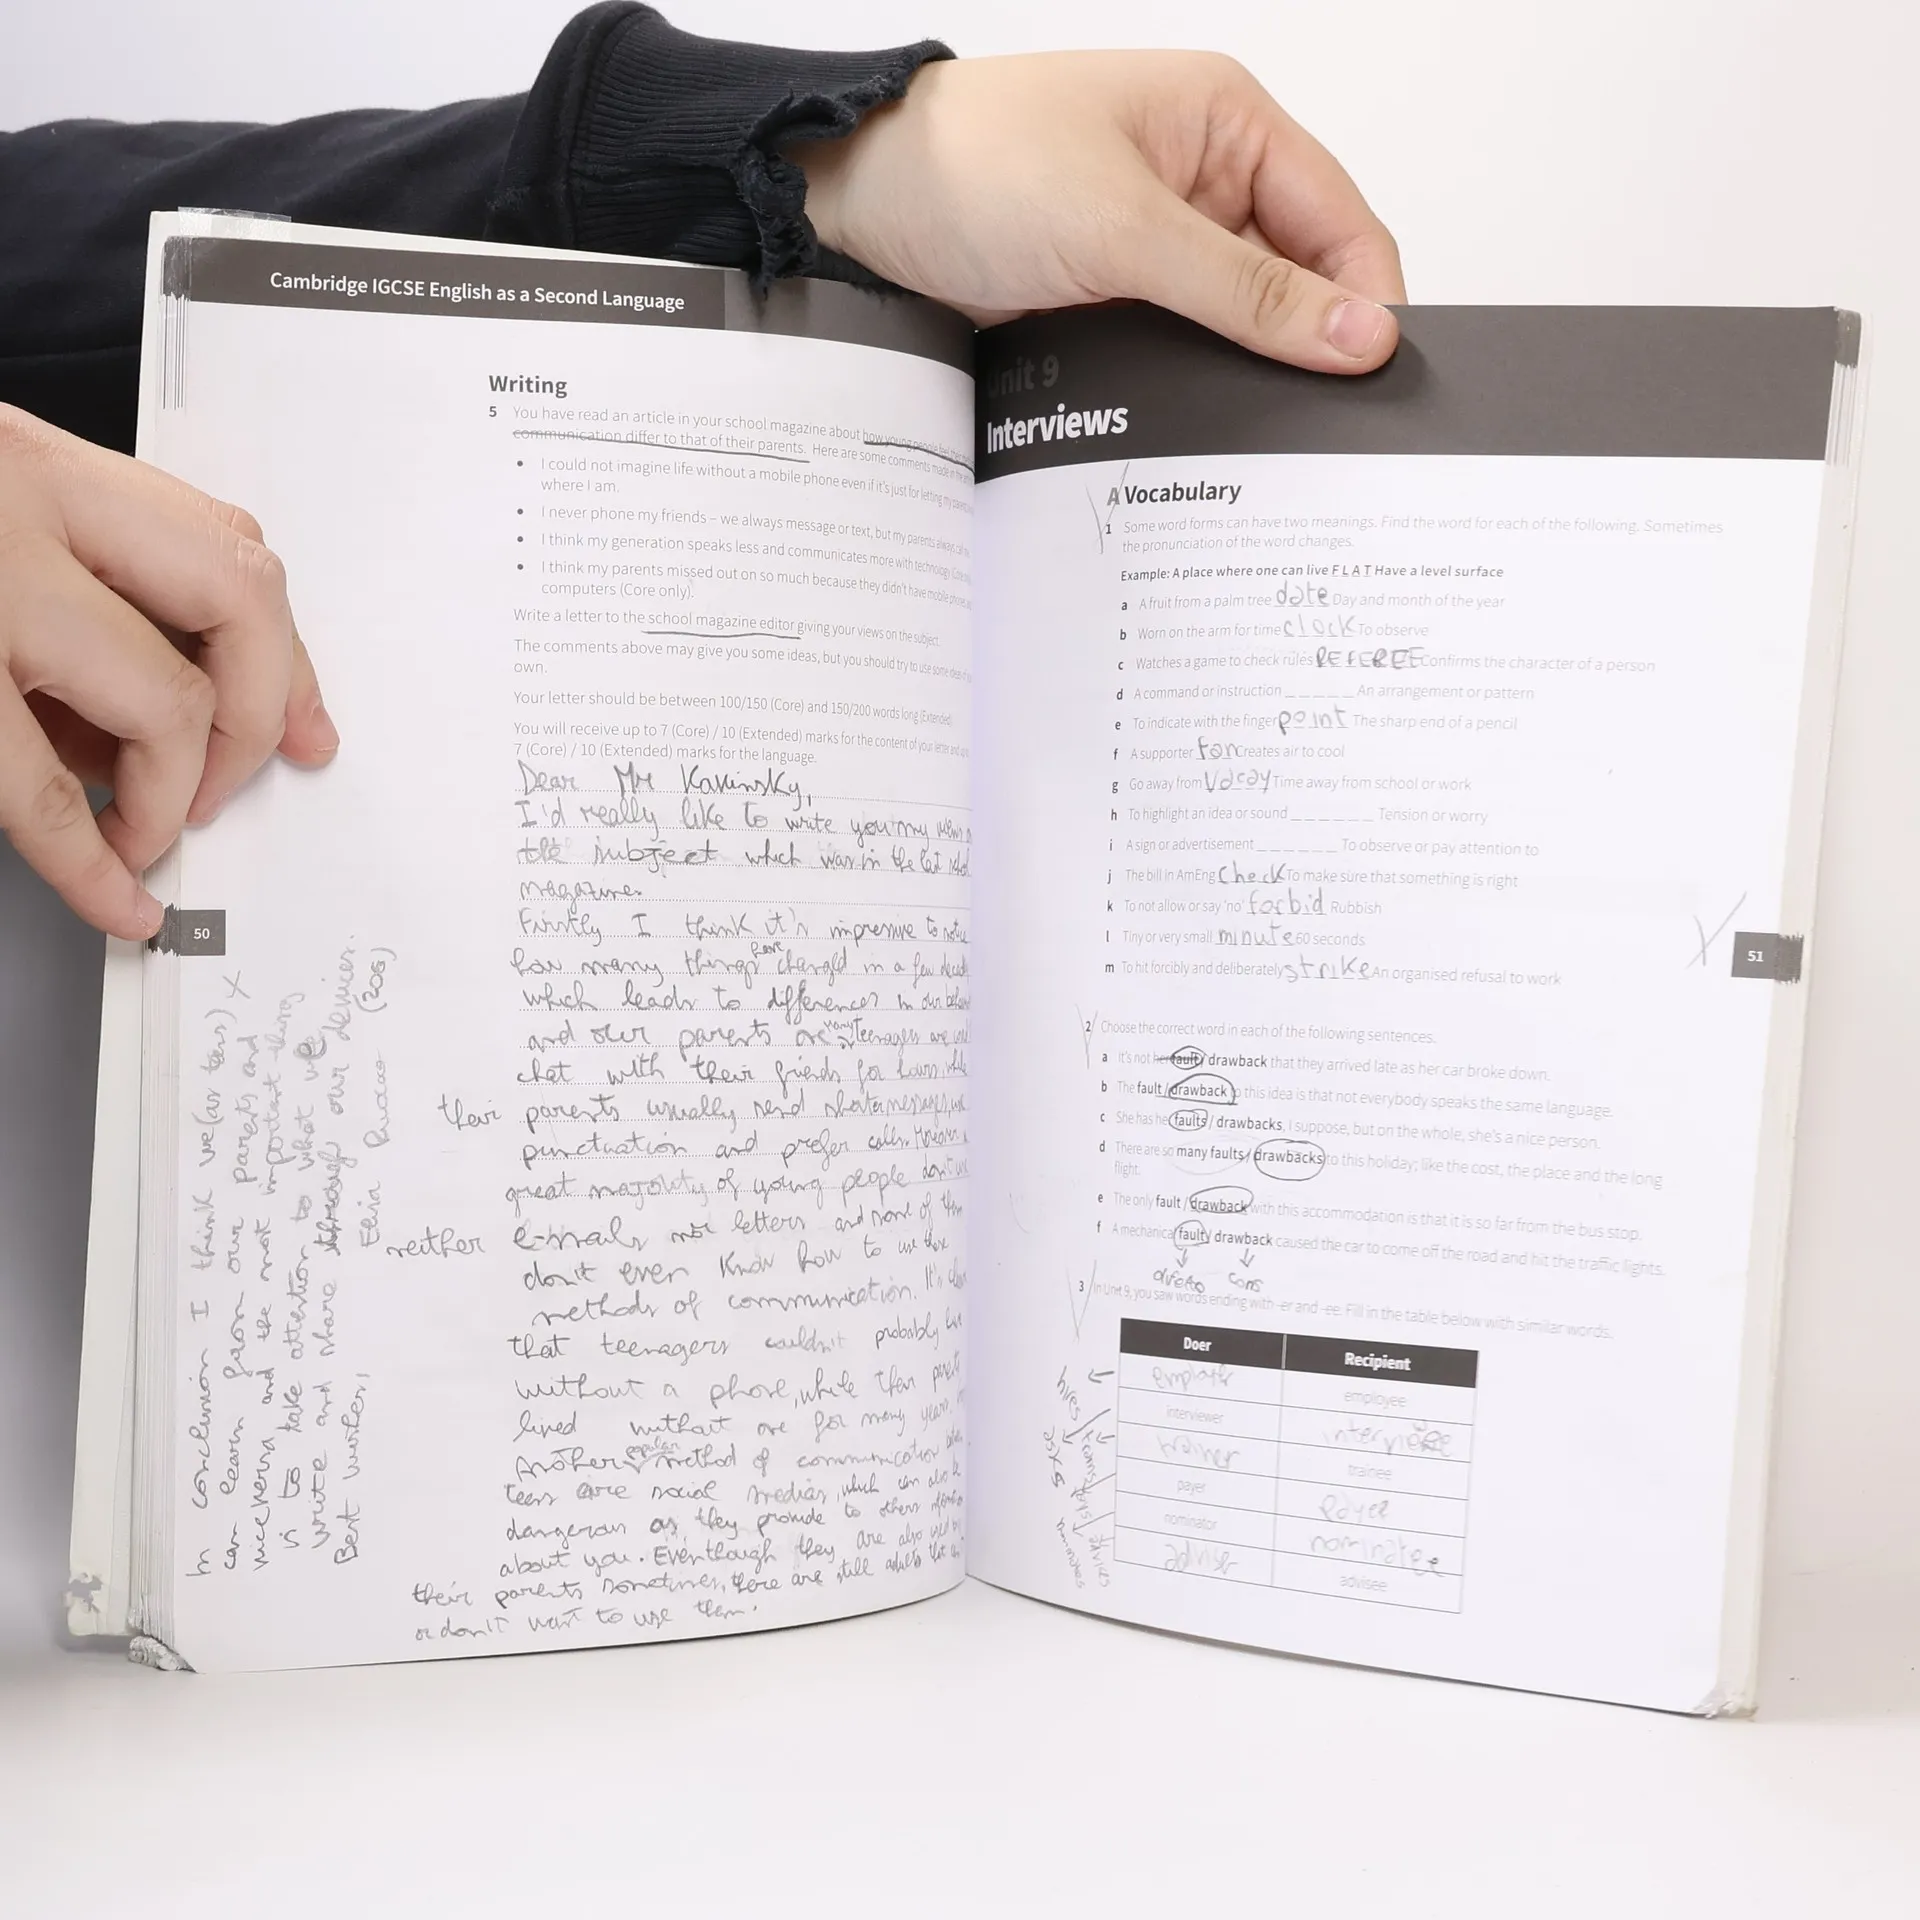 Cambridge IGCSE English as a Second Language
Writing
5 You have read an article in your school magazine about how young people feel their
communication differ to that of their parents. Here are some comments made in the
• I could not imagine life without a mobile phone even if it's just for letting my parents
where I am.
• I never phone my friends – we always message or text, but my parents always call me.
• I think my generation speaks less and communicates more with technology (Core
• I think my parents missed out on so much because they didn't have mobile phones
computers (Core only).
Write a letter to the school magazine editor giving your views on the subject.
The comments above may give you some ideas, but you should try to use some ideas of
own.
Your letter should be between 100/150 (Core) and 150/200 words long (Extended)
You will receive up to 7 (Core) / 10 (Extended) marks for the content of your letter and up
7 (Core) / 10 (Extended) marks for the language.
Dear Mr Kavinsky,
I'd really like to write you my views
the subject which was in the last
magazine.
Firstly I think it's impressive to notice
how many things have changed in a few
which leads to differences in our
and our parents many teenagers are
chat with their friends for hours, while
their parents usually send shorter messages, use
punctuation and prefer calls. Moreover
great majority of young people don't use
neither e-mails nor letters and none of them
don't even know how to use these
methods of communication. It's
that teenagers couldn't probably live
without a phone, while their parents
lived without one for many years.
Another popular method of communication
teens are social medias, which can also be
dangerous as they provide to others
about you. Even though they are also used by
their parents sometimes, there are still adults that
or don't want to use them.
In conclusion I think we (as teens) X
can learn from our parents and
viceversa and the most important thing
is to take attention to what we
write and share through our devices.
Best wishes,
Elisia (205)
50
Unit 9
Interviews
A Vocabulary
1 Some word forms can have two meanings. Find the word for each of the following. Sometimes
the pronunciation of the word changes.
Example: A place where one can live F L A T Have a level surface
a A fruit from a palm tree date Day and month of the year
b Worn on the arm for time clock To observe
c Watches a game to check rules REFEREE Confirms the character of a person
d A command or instruction _ _ _ _ _ An arrangement or pattern
e To indicate with the finger point The sharp end of a pencil
f A supporter fan Creates air to cool
g Go away from vacay Time away from school or work
h To highlight an idea or sound _ _ _ _ _ _ Tension or worry
i A sign or advertisement _ _ _ _ _ _ To observe or pay attention to
j The bill in AmEng check To make sure that something is right
k To not allow or say 'no' forbid Rubbish
l Tiny or very small minute 60 seconds
m To hit forcibly and deliberately strike An organised refusal to work
51
2 Choose the correct word in each of the following sentences.
a It's not her fault / drawback that they arrived late as her car broke down.
b The fault / drawback to this idea is that not everybody speaks the same language.
c She has her faults / drawbacks, I suppose, but on the whole, she's a nice person.
d There are so many faults / drawbacks to this holiday; like the cost, the place and the long
flight.
e The only fault / drawback with this accommodation is that it is so far from the bus stop.
f A mechanical fault / drawback caused the car to come off the road and hit the traffic lights.
difetto cons
3 In Unit 9, you saw words ending with -er and -ee. Fill in the table below with similar words.
Doer Recipient
employer employee
interviewer interviewee
trainer trainee
payer payee
nominator nominatee
adviser advisee
hires
asks
trains